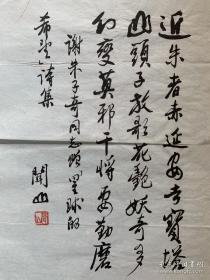 近朱者赤延安寶塔
山頭子放歌花艷妖奇多
幻變莫邪干將要勤磨
謝朱子奇同志贈星球的
希望詩集
聞山